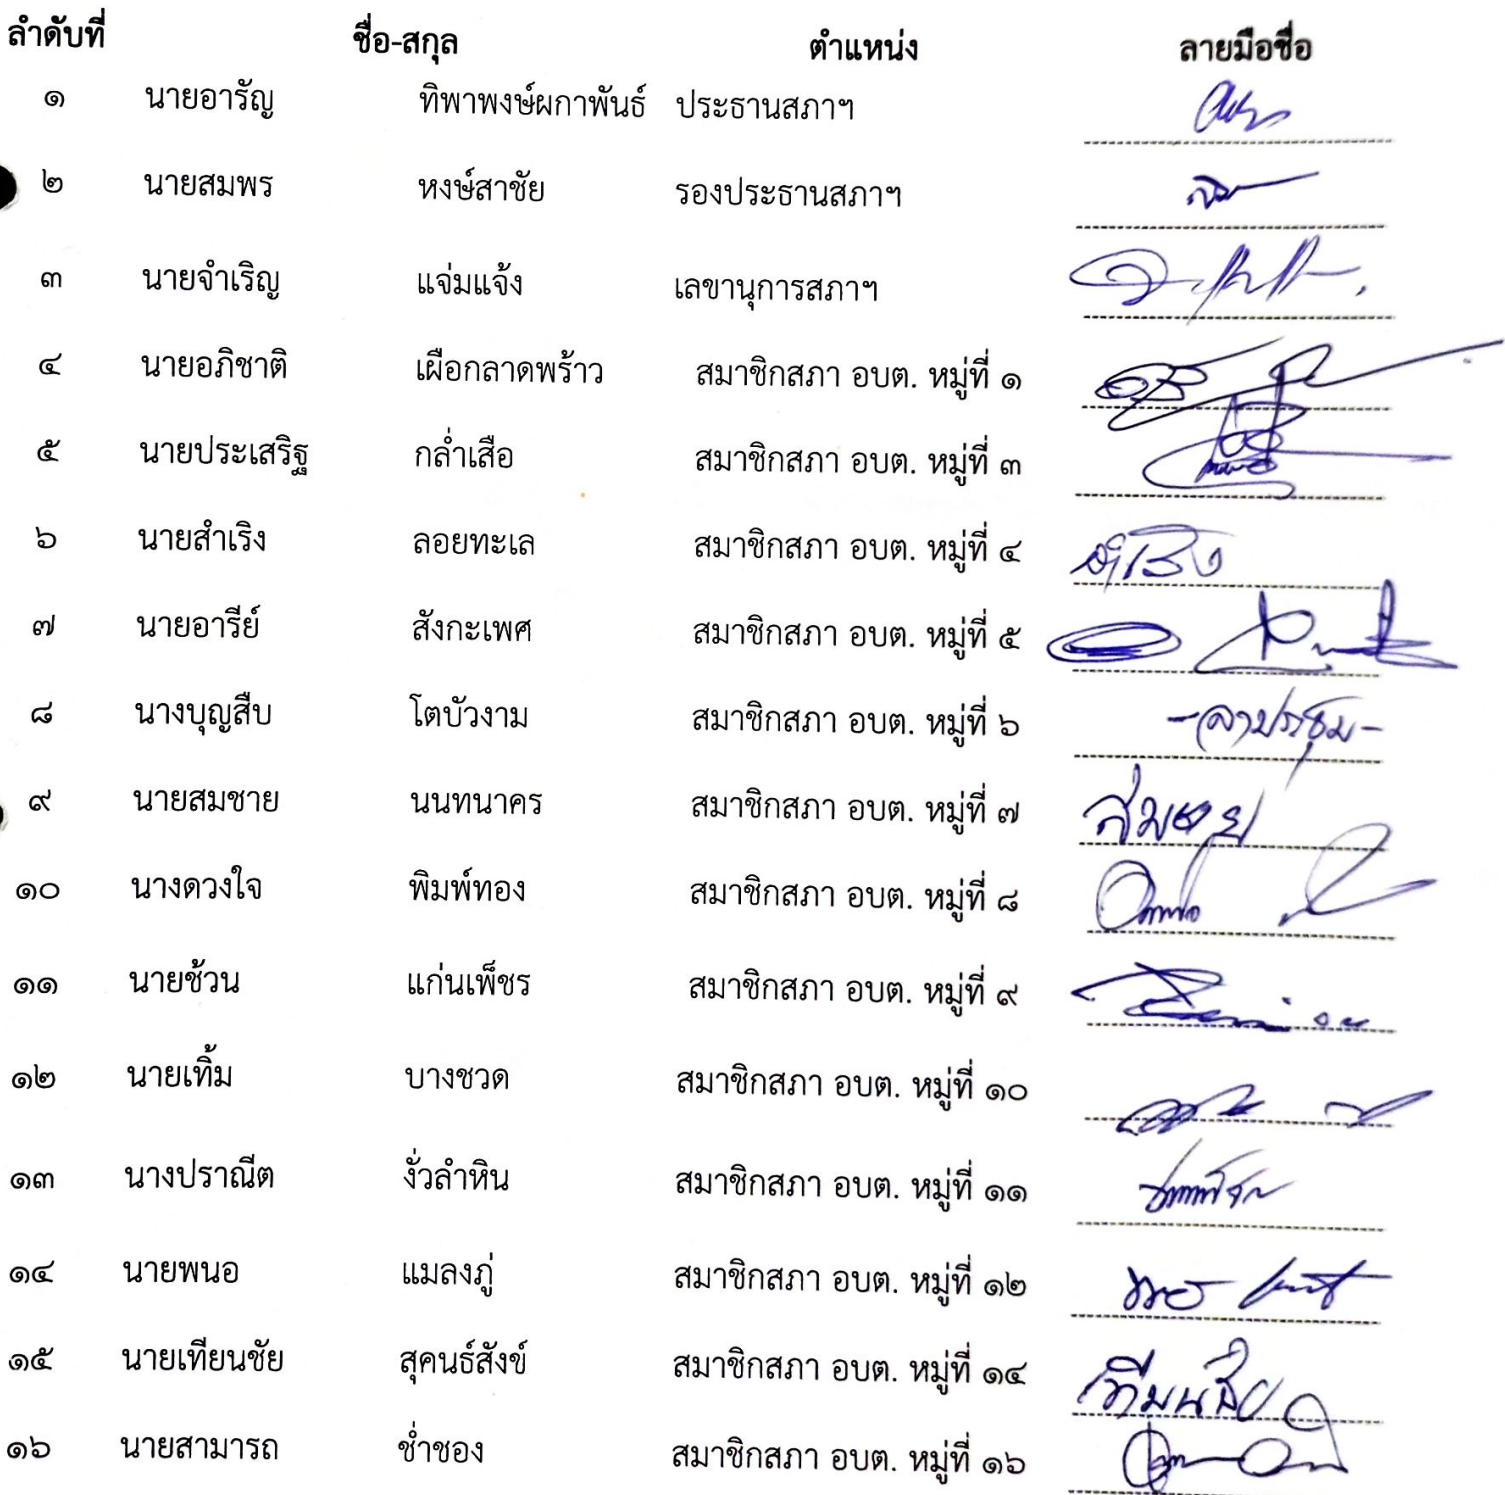 ลำดับที่ ชื่อ-สกุล ตำแหน่ง ลายมือชื่อ
๑ นายอารัญ ทิพาพงษ์ผกาพันธ์ ประธานสภาฯ
๒ นายสมพร หงษ์สาชัย รองประธานสภาฯ
๓ นายจำเริญ แจ่มแจ้ง เลขานุการสภาฯ
๔ นายอภิชาติ เผือกลาดพร้าว สมาชิกสภา อบต. หมู่ที่ ๑
๕ นายประเสริฐ กล่ำเสือ สมาชิกสภา อบต. หมู่ที่ ๓
๖ นายสำเริง ลอยทะเล สมาชิกสภา อบต. หมู่ที่ ๔ สำเริง
๗ นายอารีย์ สังกะเพศ สมาชิกสภา อบต. หมู่ที่ ๕
๘ นางบุญสืบ โตบัวงาม สมาชิกสภา อบต. หมู่ที่ ๖ -ลาประชุม-
๙ นายสมชาย นนทนาคร สมาชิกสภา อบต. หมู่ที่ ๗ สมชาย
๑๐ นางดวงใจ พิมพ์ทอง สมาชิกสภา อบต. หมู่ที่ ๘
๑๑ นายช้วน แก่นเพ็ชร สมาชิกสภา อบต. หมู่ที่ ๙
๑๒ นายเทิ้ม บางชวด สมาชิกสภา อบต. หมู่ที่ ๑๐
๑๓ นางปราณีต งั่วลำหิน สมาชิกสภา อบต. หมู่ที่ ๑๑
๑๔ นายพนอ แมลงภู่ สมาชิกสภา อบต. หมู่ที่ ๑๒
๑๕ นายเทียนชัย สุคนธ์สังข์ สมาชิกสภา อบต. หมู่ที่ ๑๔ เทียนชัย
๑๖ นายสามารถ ช่ำชอง สมาชิกสภา อบต. หมู่ที่ ๑๖